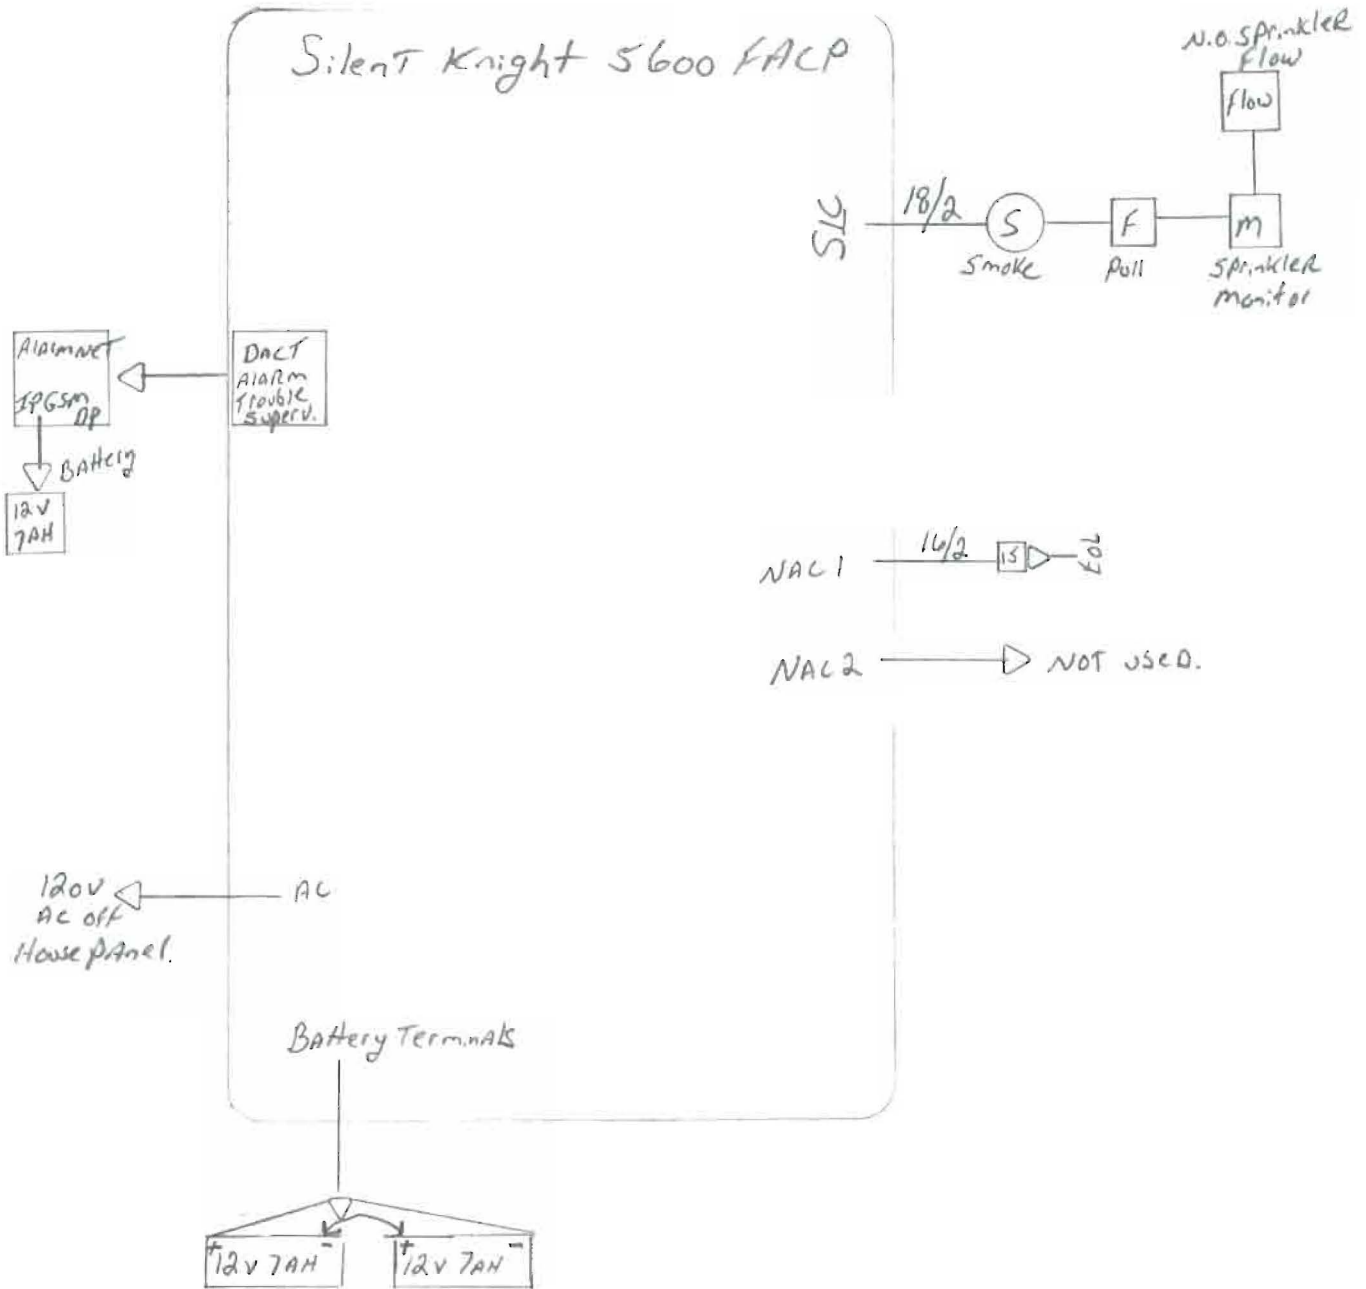 Silent Knight 5600 FACP
N.O. Sprinkler
Flow
Flow
SLC
18/2
S
Smoke
F
Pull
M
Sprinkler
Monitor
AlarmNet
IPGSM
DP
Battery
12V
7AH
DACT
Alarm
Trouble
Superv.
NAC 1
16/2
15
EOL
NAC 2
NOT USED.
120V
AC off
House Panel.
AC
Battery Terminals
+ 12V 7AH -
+ 12V 7AH -